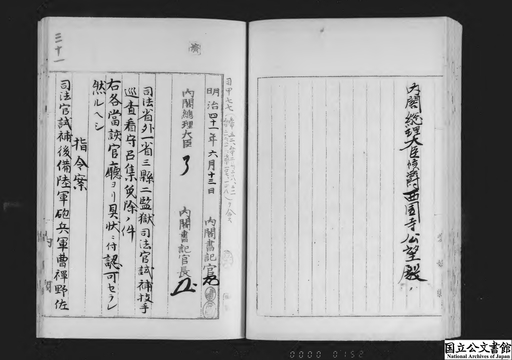 内閣総理大臣侯爵西園寺公望殿
明治四十一年六月十三日
内閣書記官
内閣総理大臣
内閣書記官長
司法省外一省三縣二監獄司法官試補技手
巡査看守召集免除ノ件
右各當該官廳ヨリ具状ニ付認可セラレ
然ルヘシ
指令案
司法官試補後備陸軍砲兵軍曹禪野佐
三十一
0000 0152
国立公文書館
National Archives of Japan